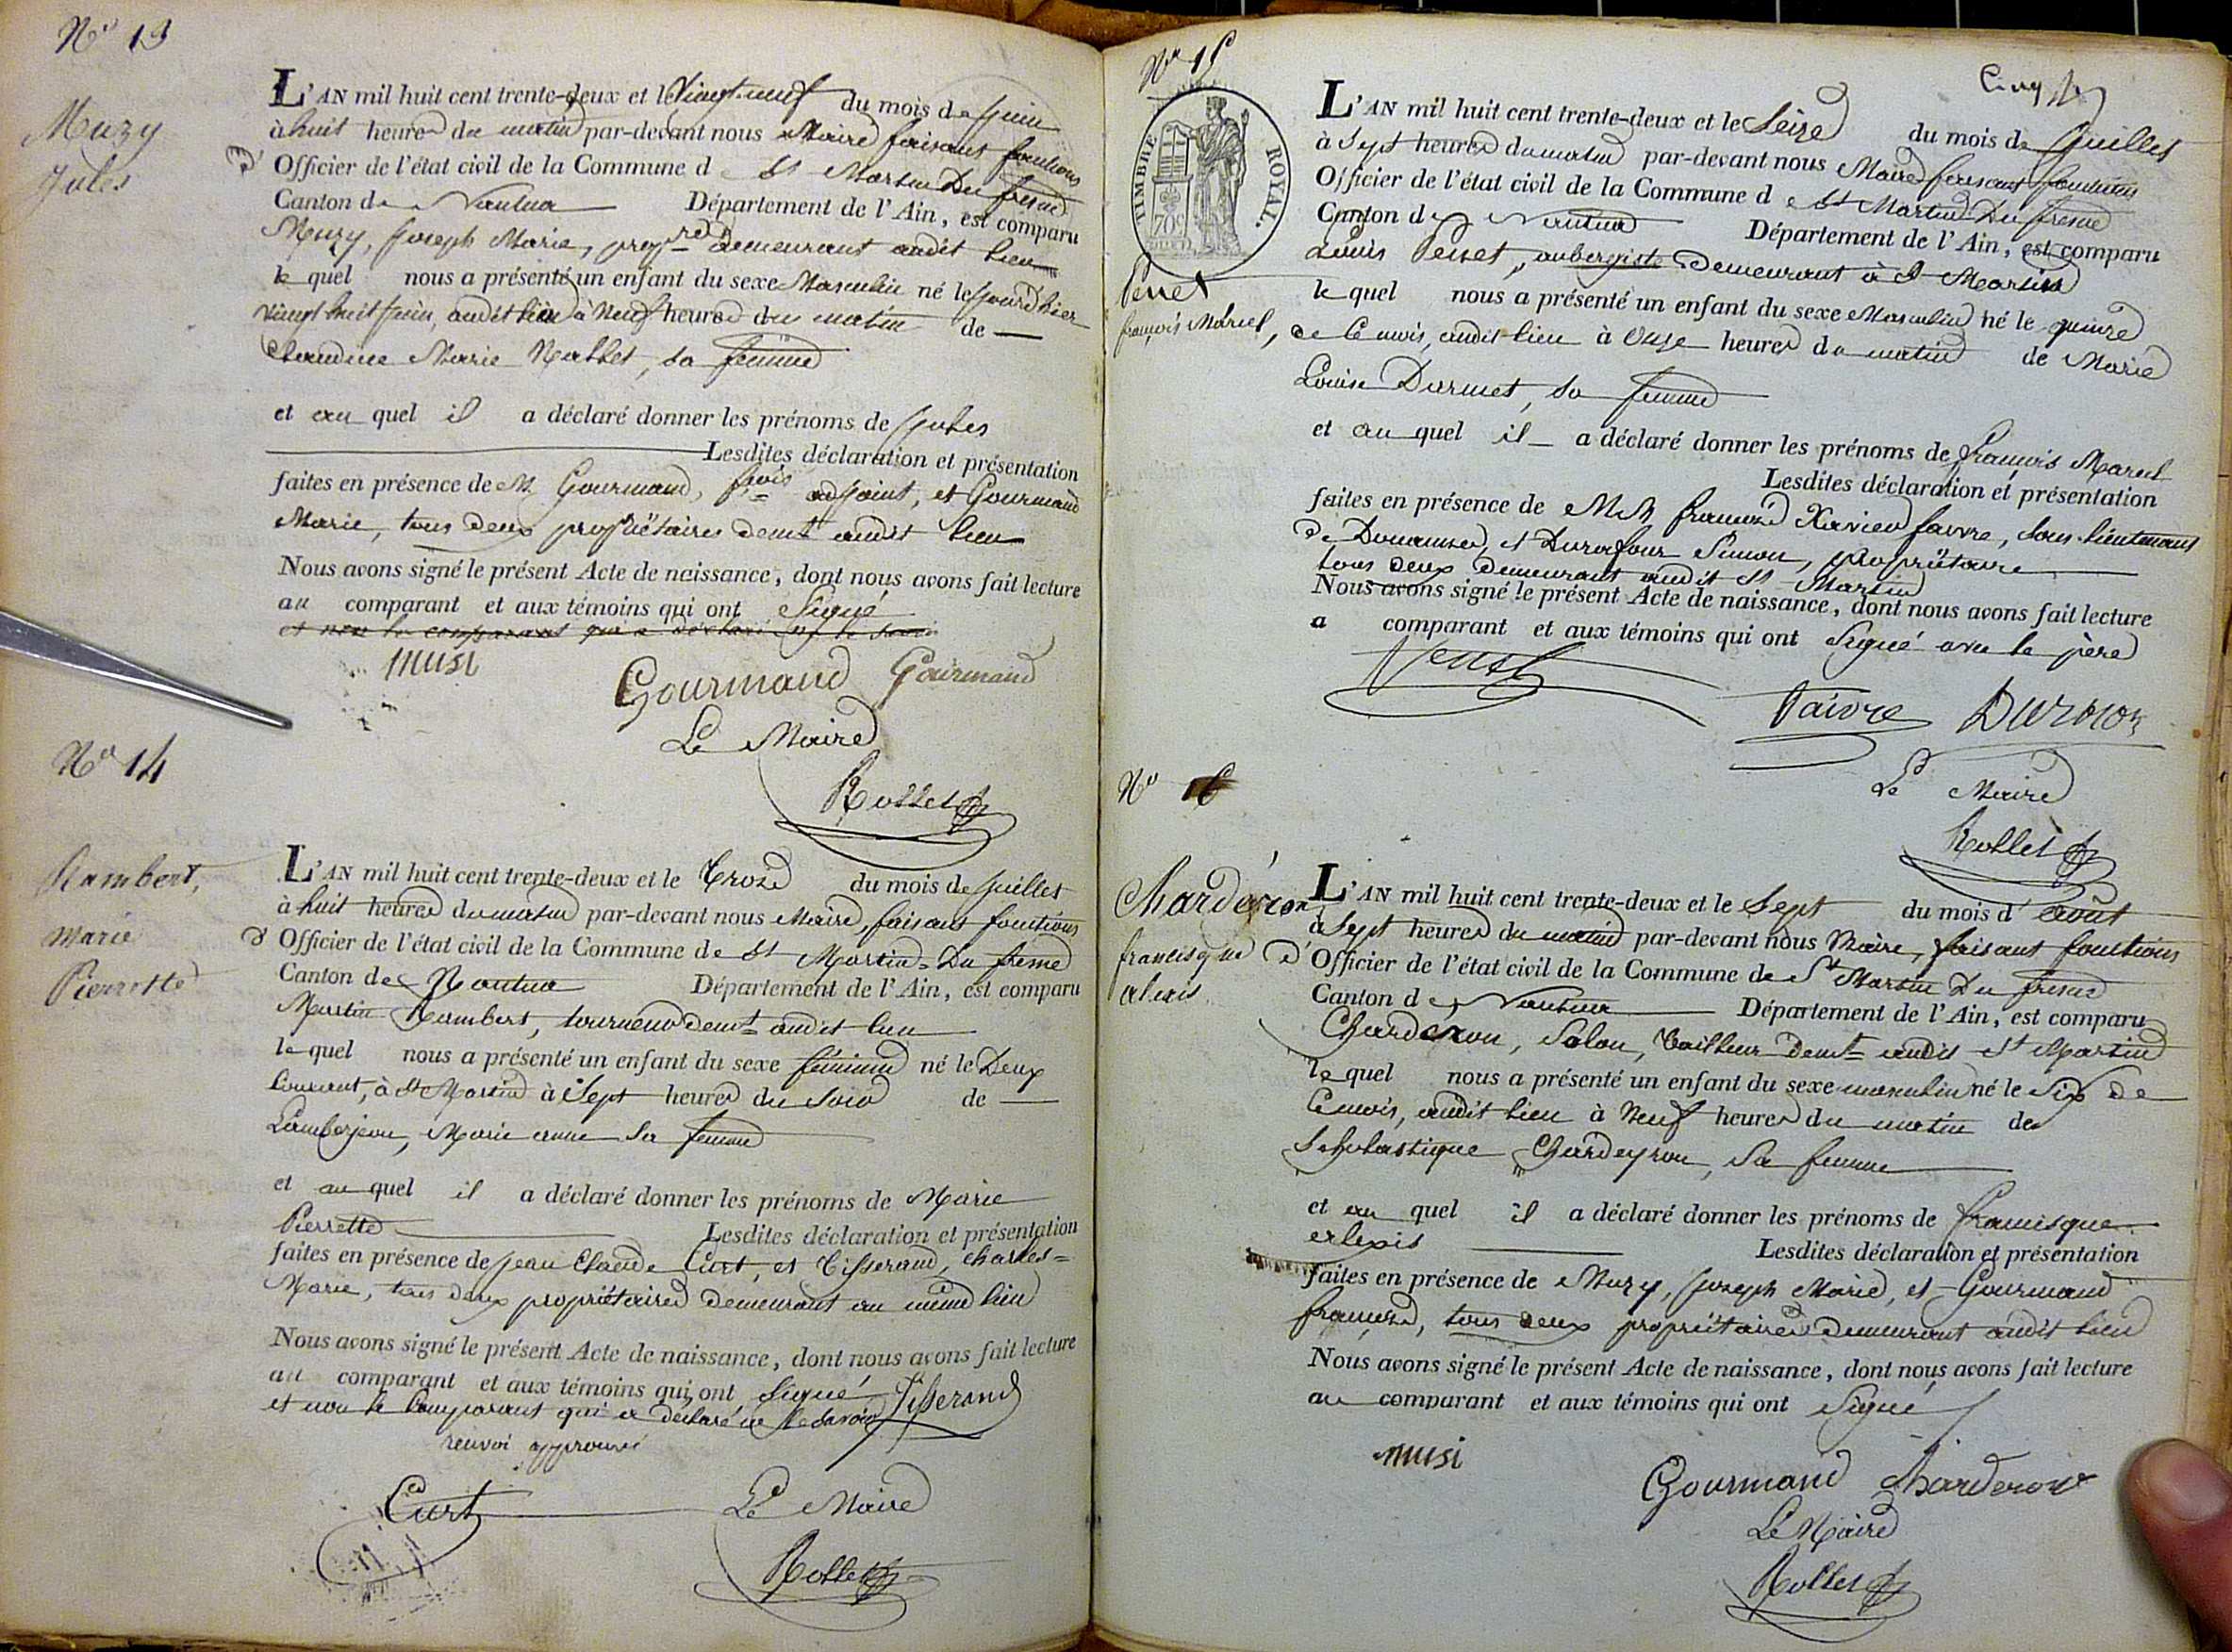 Nº 13
Muzy
Jules
L'AN mil huit cent trente-deux et le vingt-neuf du mois de juin
à huit heures du matin par-devant nous Maire faisant fonctions
d' Officier de l'état civil de la Commune de St Martin Du fresne
Canton de Nantua Département de l'Ain, est comparu
Muzy, Joseph Marie, propre demeurant audit lieu
le quel nous a présenté un enfant du sexe Masculin né le jourd'hier
vingt huit juin, audit lieu à Neuf heures du matin de
Claudine Marie Nallet, sa femme
et au quel il a déclaré donner les prénoms de Jules
Lesdites déclaration et présentation
faites en présence de M Gourmand, fçois adjoint, et Gourmand
Marie, tous deux propriétaires demt audit lieu
Nous avons signé le présent Acte de naissance, dont nous avons fait lecture
au comparant et aux témoins qui ont Signé
et non le comparant qui a déclaré ne le savoir
musi
Gourmand Gourmand
Le Maire
Rollet
Nº 14
Rambert,
Marie
Pierrette
L'AN mil huit cent trente-deux et le trois du mois de juillet
à huit heures du matin par-devant nous Maire, faisant fonctions
d' Officier de l'état civil de la Commune de St Martin-Du fresne
Canton de Nantua Département de l'Ain, est comparu
Martin Rambert, tourneur demt audit lieu
le quel nous a présenté un enfant du sexe féminin né le Deux
Courant, à St Martin à Sept heures du Soir de
Lamberjeon, Marie anne sa femme
et au quel il a déclaré donner les prénoms de Marie
Pierrette Lesdites déclaration et présentation
faites en présence de Jean Claude Curt, et Tisserand, Charles=
Marie, tous deux propriétaires demeurant au même lieu
Nous avons signé le présent Acte de naissance, dont nous avons fait lecture
au comparant et aux témoins qui ont Signé Tisserand
et non le Comparant qui a déclaré ne le savoir
renvoi approuvé
Curt Le Maire
Rollet
Nº 15
TIMBRE ROYAL.
70c
Perret
françois Marcel,
L'AN mil huit cent trente-deux et le Seize du mois de Juillet
à Sept heures du matin par-devant nous Maire faisant fonctions
Officier de l'état civil de la Commune de St Martin-Du fresne
Canton de Nantua Département de l'Ain, est comparu
Louis Perret, aubergiste Demeurant à St Martin
le quel nous a présenté un enfant du sexe Masculin né le quinze
de Ce mois, audit lieu à Onze heures du matin de Marie
Louise Durmet, sa femme
et au quel il a déclaré donner les prénoms de françois Marcel
Lesdites déclaration et présentation
faites en présence de MM françois Xavier favre, Sous-lieutenant
de Douannes, et Durafour Simon, propriétaire
tous deux demeurant audit St Martin
Nous avons signé le présent Acte de naissance, dont nous avons fait lecture
a comparant et aux témoins qui ont Signé avec le père
Faivre
Le Maire
Rollet
Nº 16
Charderon
francisque
alexis
L'AN mil huit cent trente-deux et le Sept du mois d'août
à Sept heures du matin par-devant nous Maire, faisant fonctions
d' Officier de l'état civil de la Commune de St Martin Du fresne
Canton de Nantua Département de l'Ain, est comparu
Charderon, Solon, tailleur demt audit St Martin
le quel nous a présenté un enfant du sexe masculin né le Six de
Ce mois, audit lieu à Neuf heures du matin de
Scholastique Chardeyron, Sa femme
et au quel il a déclaré donner les prénoms de francisque
alexis Lesdites déclaration et présentation
faites en présence de Muzy, Joseph Marie, et Gourmand
françois, tous deux propriétaires demeurant audit lieu
Nous avons signé le présent Acte de naissance, dont nous avons fait lecture
au comparant et aux témoins qui ont Signé
musi
Gourmand Charderon
Le Maire
Rollet